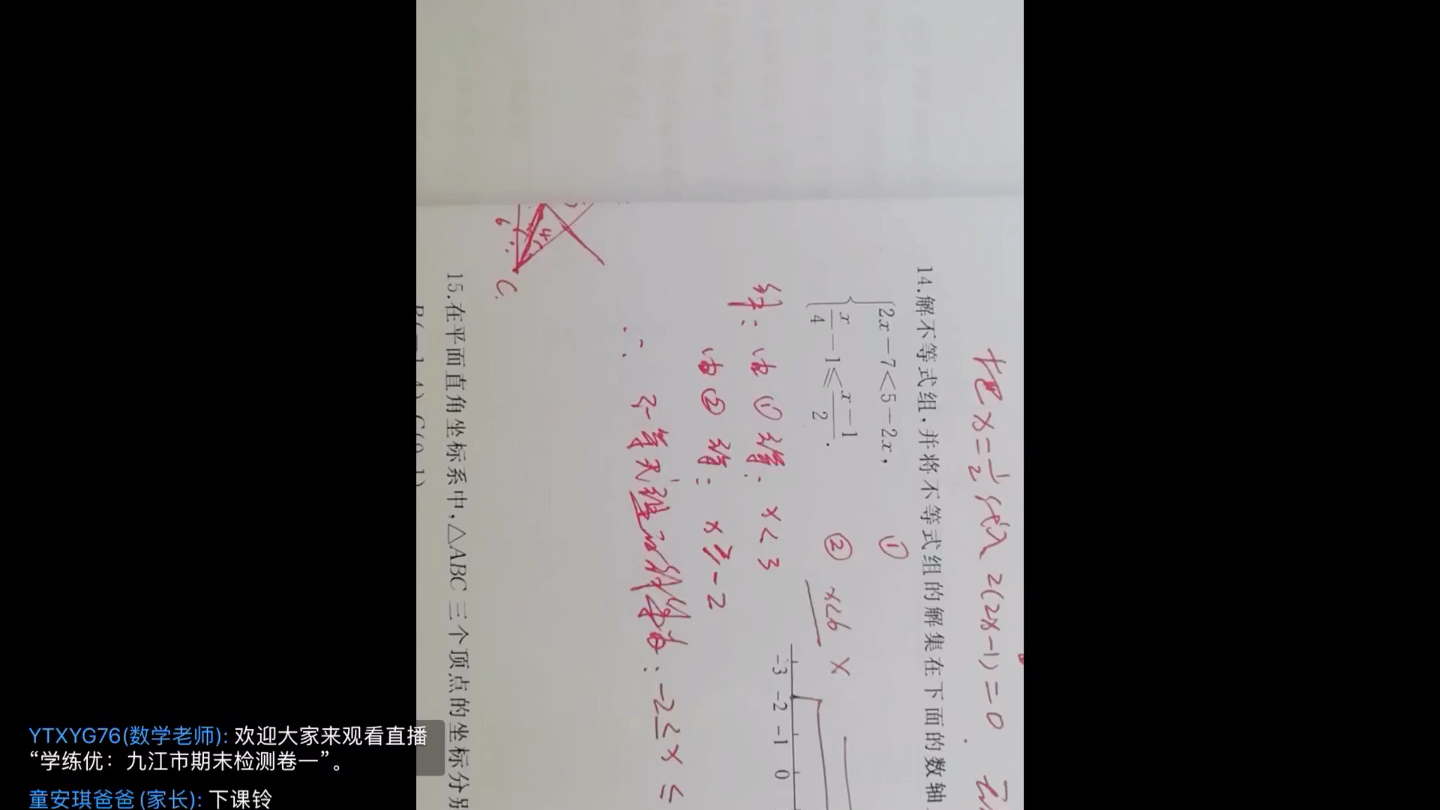 把x=1/2代入 2(2x-1)=0
14.解不等式组,并将不等式组的解集在下面的数轴
2x-7<5-2x, ①
x/4-1≤x-1/2. ② x<6 x
-3 -2 -1 0
解: 由①得: x<3
由②得: x≥-2
∴ 不等式组的解集为: -2≤x
6 4
C.
15.在平面直角坐标系中,△ABC 三个顶点的坐标分别
YTXYG76(数学老师): 欢迎大家来观看直播
“学练优：九江市期末检测卷一”。
童安琪爸爸(家长): 下课铃